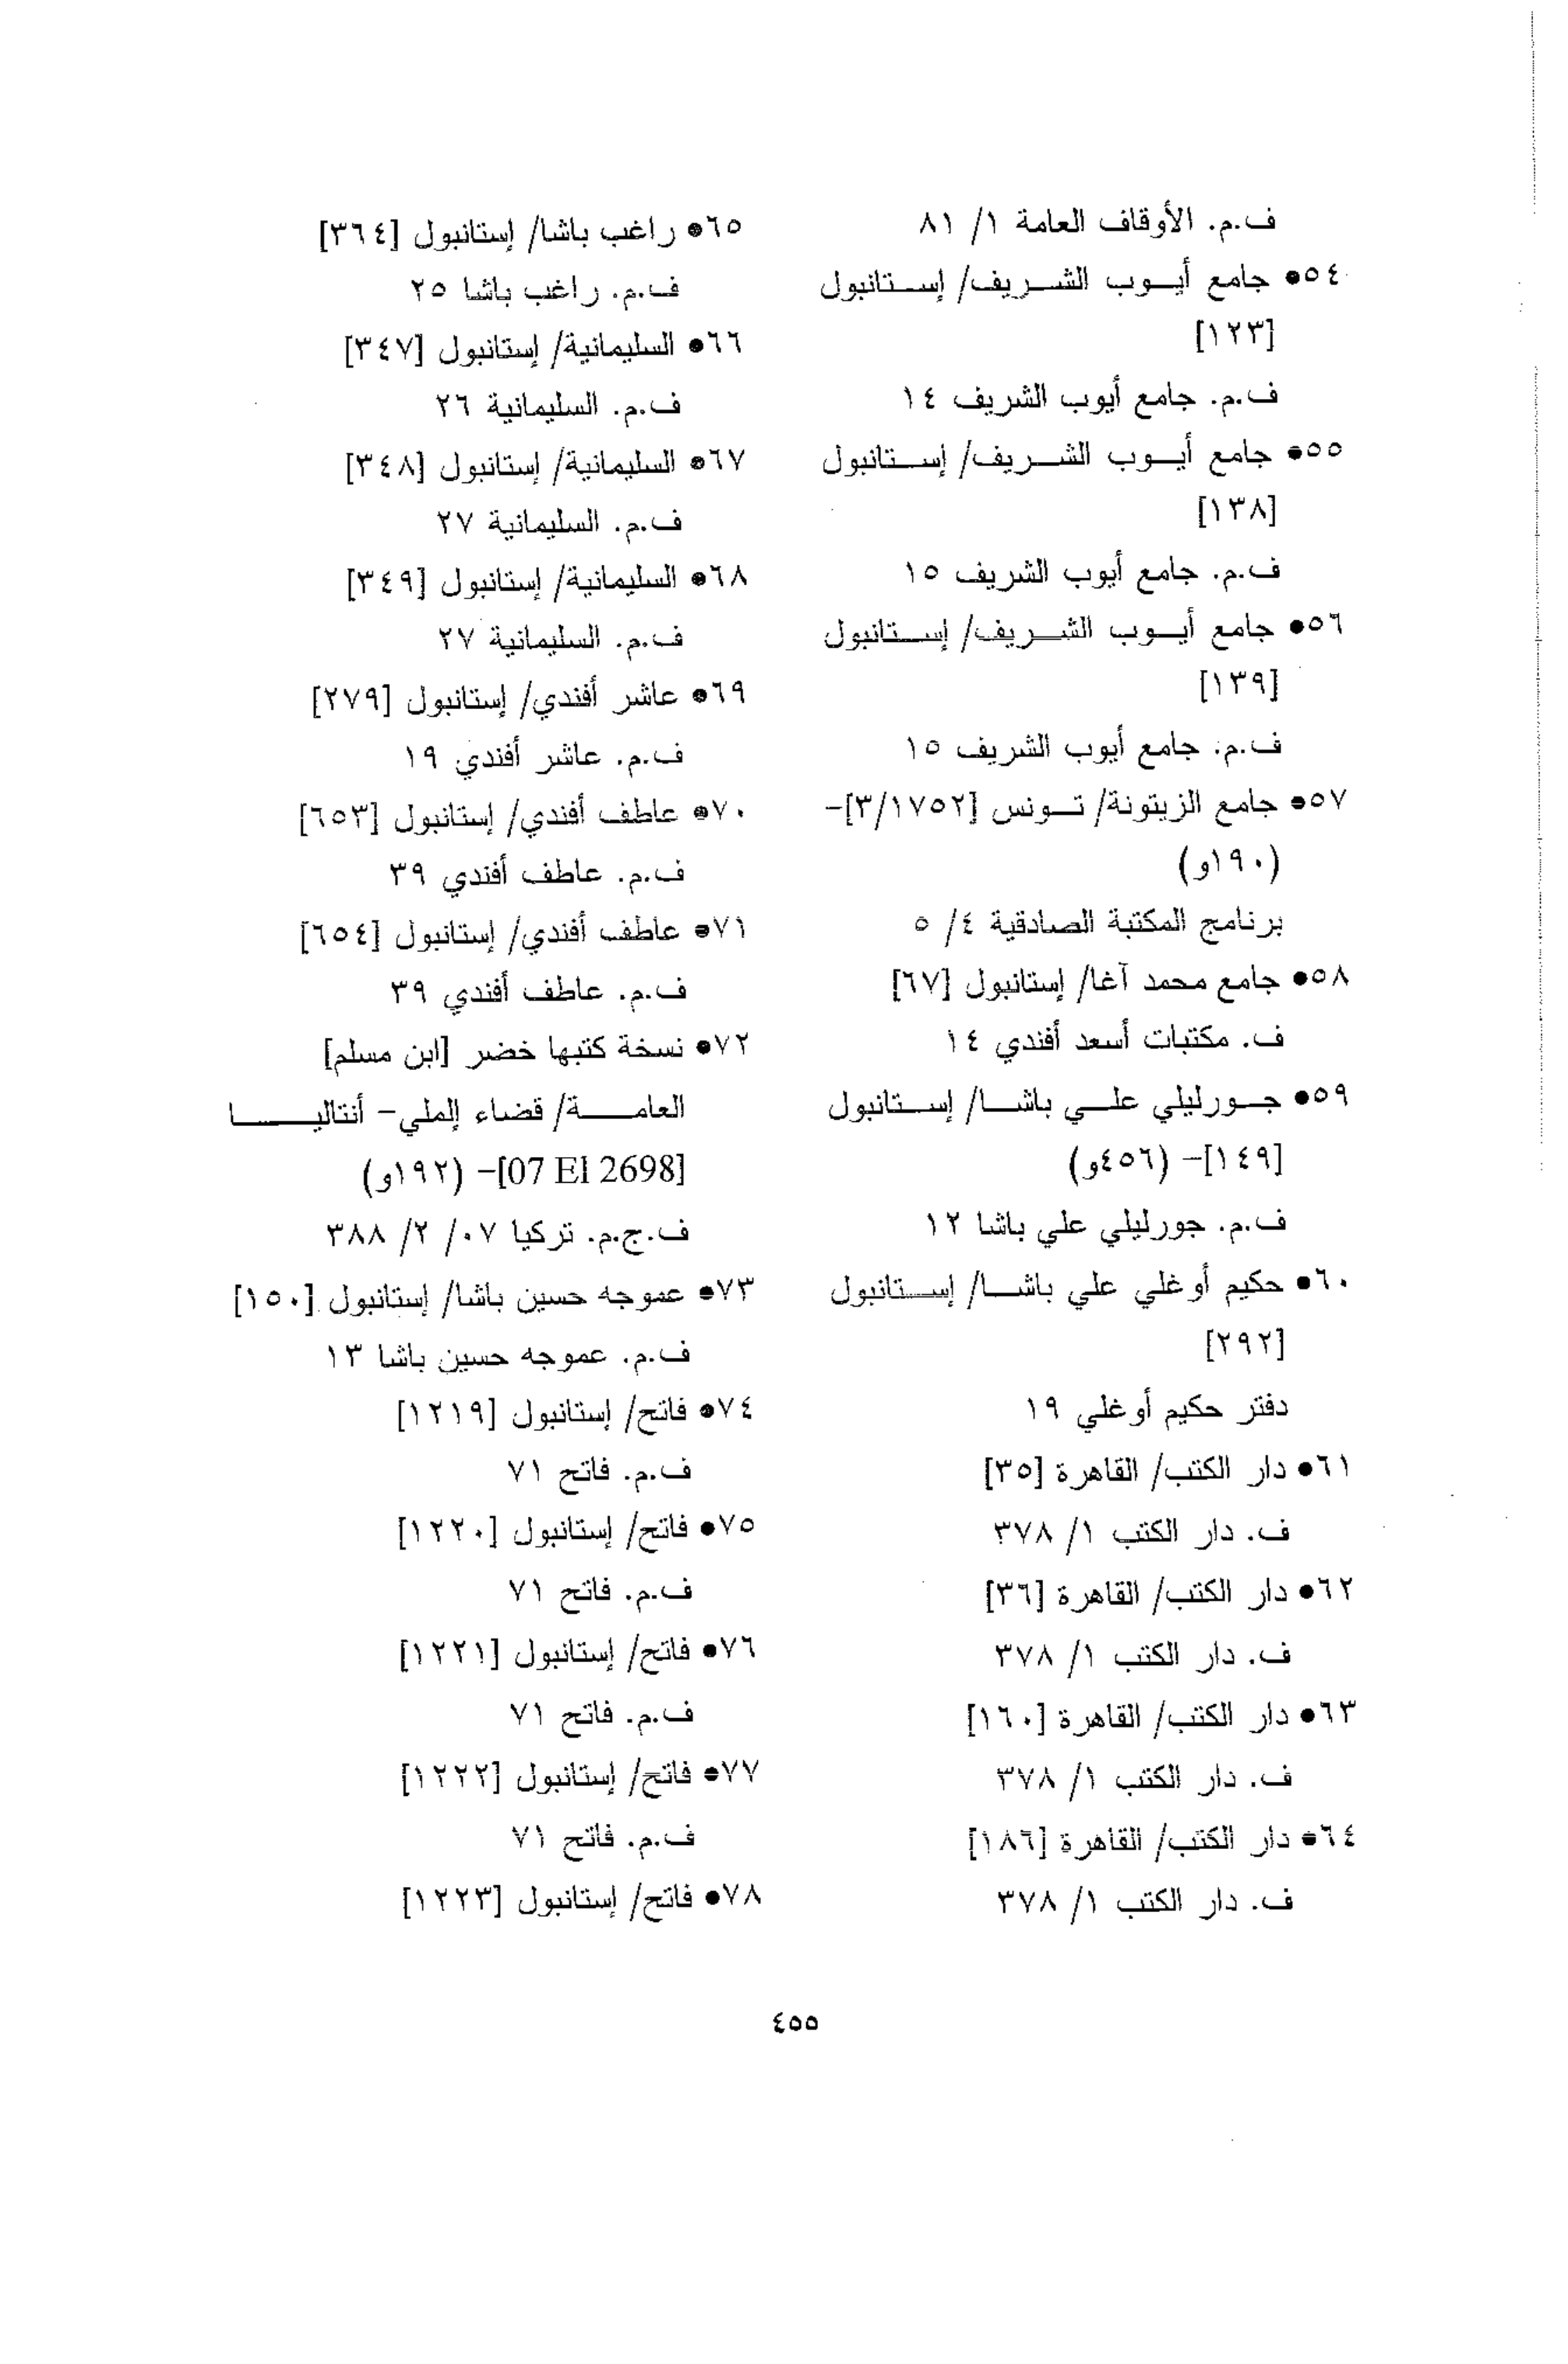 ف.م. الأوقاف العامة ١/ ٨١
٥٤• جامع أيوب الشريف/ إستانبول
[١٢٣]
ف.م. جامع أيوب الشريف ١٤
٥٥• جامع أيوب الشريف/ إستانبول
[١٣٨]
ف.م. جامع أيوب الشريف ١٥
٥٦• جامع أيوب الشريف/ إستانبول
[١٣٩]
ف.م. جامع أيوب الشريف ١٥
٥٧• جامع الزيتونة/ تونس [٣/١٧٥٢]-
(١٩٠و)
برنامج المكتبة الصادقية ٤/ ٥
٥٨• جامع محمد آغا/ إستانبول [٦٧]
ف. مكتبات أسعد أفندي ١٤
٥٩• جورليلي علي باشا/ إستانبول
[١٤٩]- (٤٥٦و)
ف.م. جورليلي علي باشا ١٢
٦٠• حكيم أوغلي علي باشا/ إستانبول
[٢٩٢]
دفتر حكيم أوغلي ١٩
٦١• دار الكتب/ القاهرة [٣٥]
ف. دار الكتب ١/ ٣٧٨
٦٢• دار الكتب/ القاهرة [٣٦]
ف. دار الكتب ١/ ٣٧٨
٦٣• دار الكتب/ القاهرة [١٦٠]
ف. دار الكتب ١/ ٣٧٨
٦٤• دار الكتب/ القاهرة [١٨٦]
ف. دار الكتب ١/ ٣٧٨
٦٥• راغب باشا/ إستانبول [٣٦٤]
ف.م. راغب باشا ٢٥
٦٦• السليمانية/ إستانبول [٣٤٧]
ف.م. السليمانية ٢٦
٦٧• السليمانية/ إستانبول [٣٤٨]
ف.م. السليمانية ٢٧
٦٨• السليمانية/ إستانبول [٣٤٩]
ف.م. السليمانية ٢٧
٦٩• عاشر أفندي/ إستانبول [٢٧٩]
ف.م. عاشر أفندي ١٩
٧٠• عاطف أفندي/ إستانبول [٦٥٣]
ف.م. عاطف أفندي ٣٩
٧١• عاطف أفندي/ إستانبول [٦٥٤]
ف.م. عاطف أفندي ٣٩
٧٢• نسخة كتبها خضر [ابن مسلم]
العامة/ قضاء إلملي- أنتاليا
[07 El 2698]- (١٩٢و)
ف.ج.م. تركيا ٠٧/ ٢/ ٣٨٨
٧٣• عموجه حسين باشا/ إستانبول [١٥٠]
ف.م. عموجه حسين باشا ١٣
٧٤• فاتح/ إستانبول [١٢١٩]
ف.م. فاتح ٧١
٧٥• فاتح/ إستانبول [١٢٢٠]
ف.م. فاتح ٧١
٧٦• فاتح/ إستانبول [١٢٢١]
ف.م. فاتح ٧١
٧٧• فاتح/ إستانبول [١٢٢٢]
ف.م. فاتح ٧١
٧٨• فاتح/ إستانبول [١٢٢٣]
٤٥٥